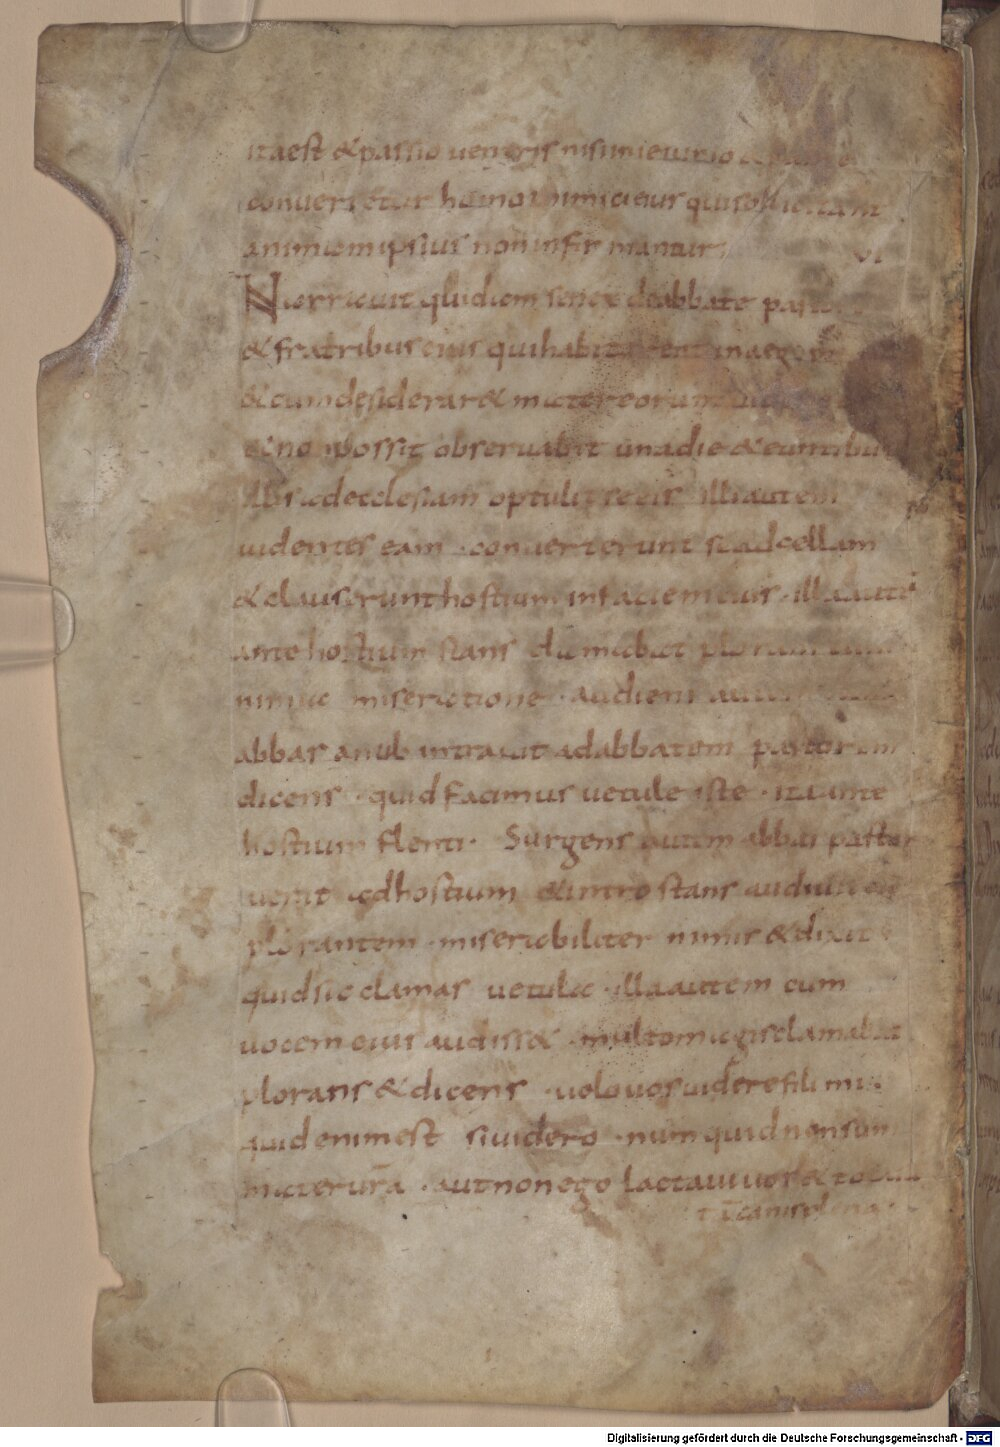 ita est & passio ventris nisi in ieiunio &
converretur homo inimici eius qui sollicitant
animam ipsius non infirmantur
VI
Narravit quidam senex de abbate pas
& fratribus eius qui habitabant in aegy
& cum desiderar& mater eorum
& non possit observabit una die & euntibus
illis ad ecclesiam optulit se eis illi autem
videntes eam · converterunt se ad cellam
& clauserunt hostium in faciem eius · illa aute
ante hostium stans clamabat plorans cum
nimia miseratione · audiens autem
abbas anub intravit ad abbatem pastorem
dicens · quid facimus vetule iste · ita ante
hostium flenti · Surgens autem abbas pastor
venit ad hostium & intro stans audivit eam
plorantem · miserabiliter nimis & dixit
quid sic clamas vetula · illa autem cum
vocem eius audiss& · multo magis clamabat
plorans & dicens · volo vos videre fili mi ·
quid enim est si videro · numquid non sum
mater vr̄a · aut non ego lactavi vos & tota
canis plena